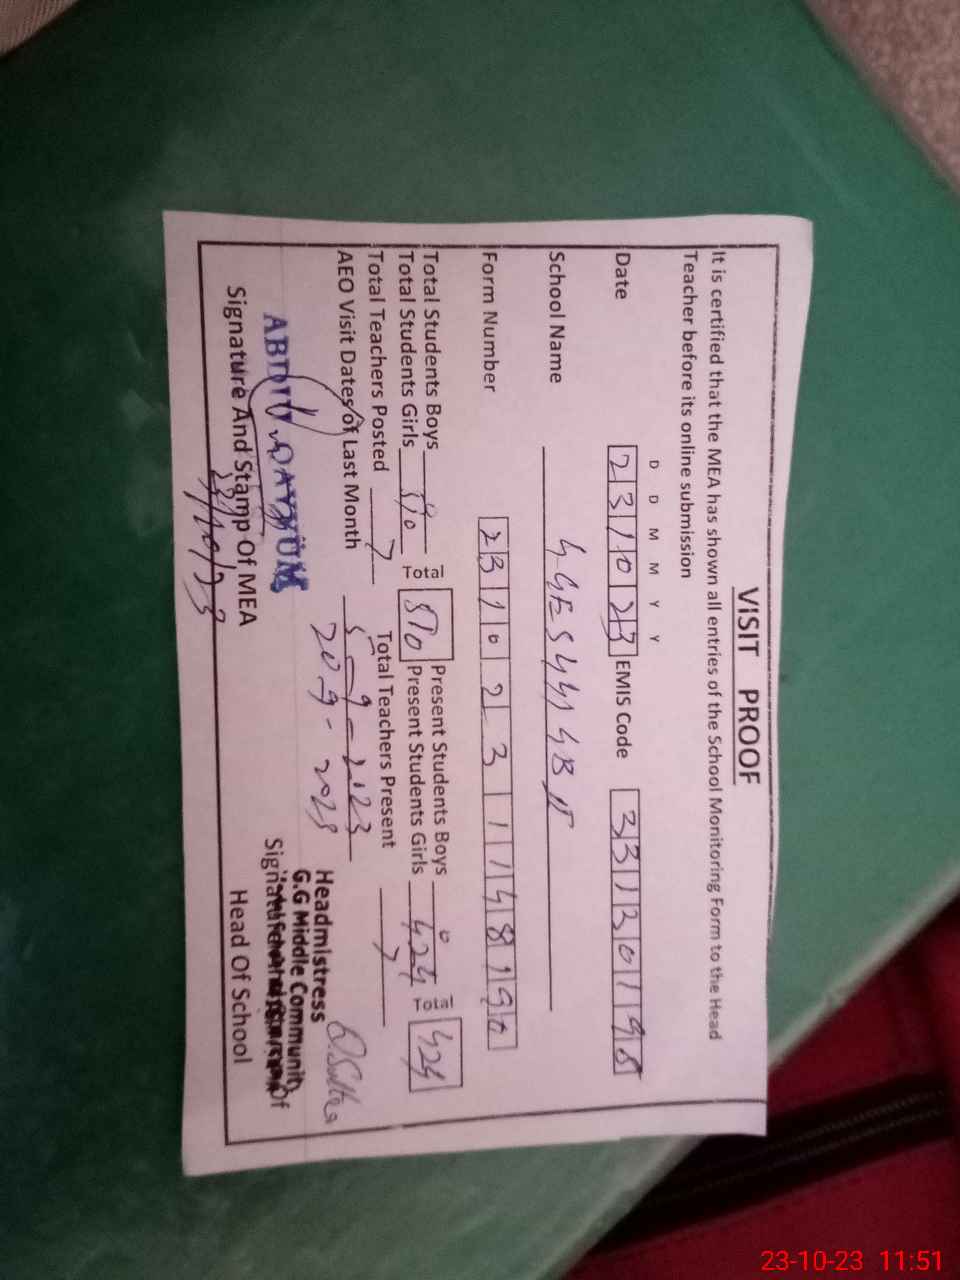 VISIT PROOF
It is certified that the MEA has shown all entries of the School Monitoring Form to the Head
Teacher before its online submission
D D M M Y Y
Date 231023 EMIS Code 33130198
School Name
Form Number 231023114819
Total Students Boys Present Students Boys 0
Total Students Girls Total Present Students Girls 424 Total 424
Total Teachers Posted 7 Total Teachers Present 7
AEO Visit Dates of Last Month 5-9-2023
20-9-2023
ABDUL QAYYUM
Signature And Stamp Of MEA
23/10/23
Headmistress
G.G Middle Community
Head Of School
23-10-23 11:51